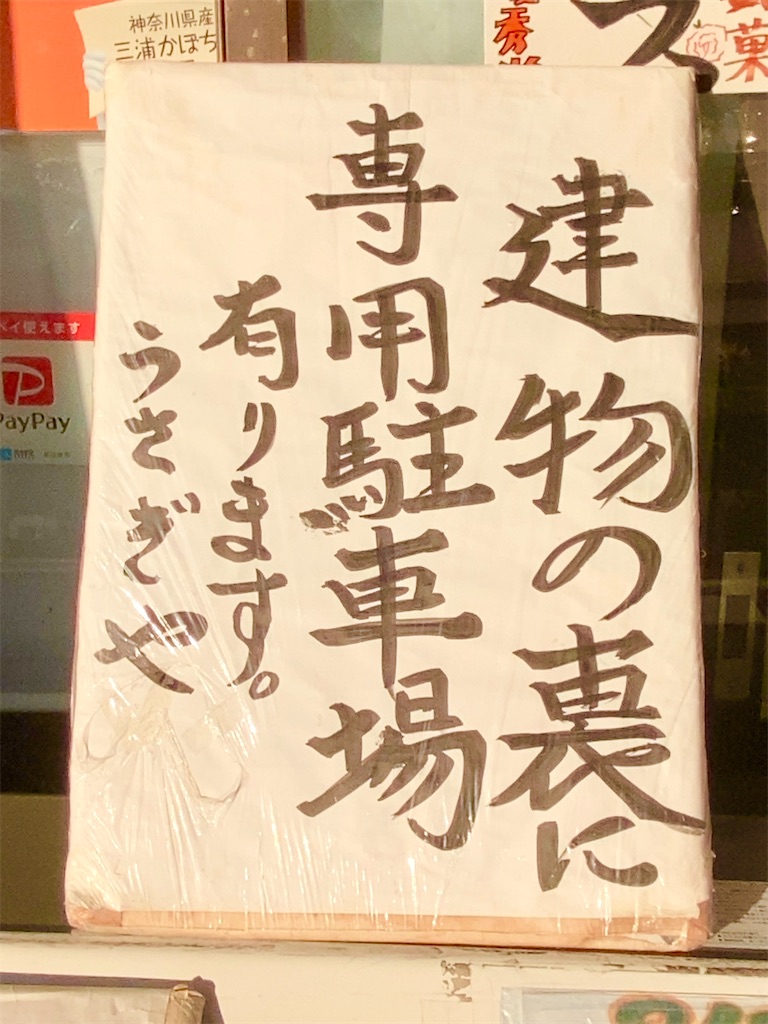 建物の裏に
専用駐車場
有ります。
うさぎや
神奈川県産
三浦かぼち
ペイ使えます
PayPay
ス
菓
秀